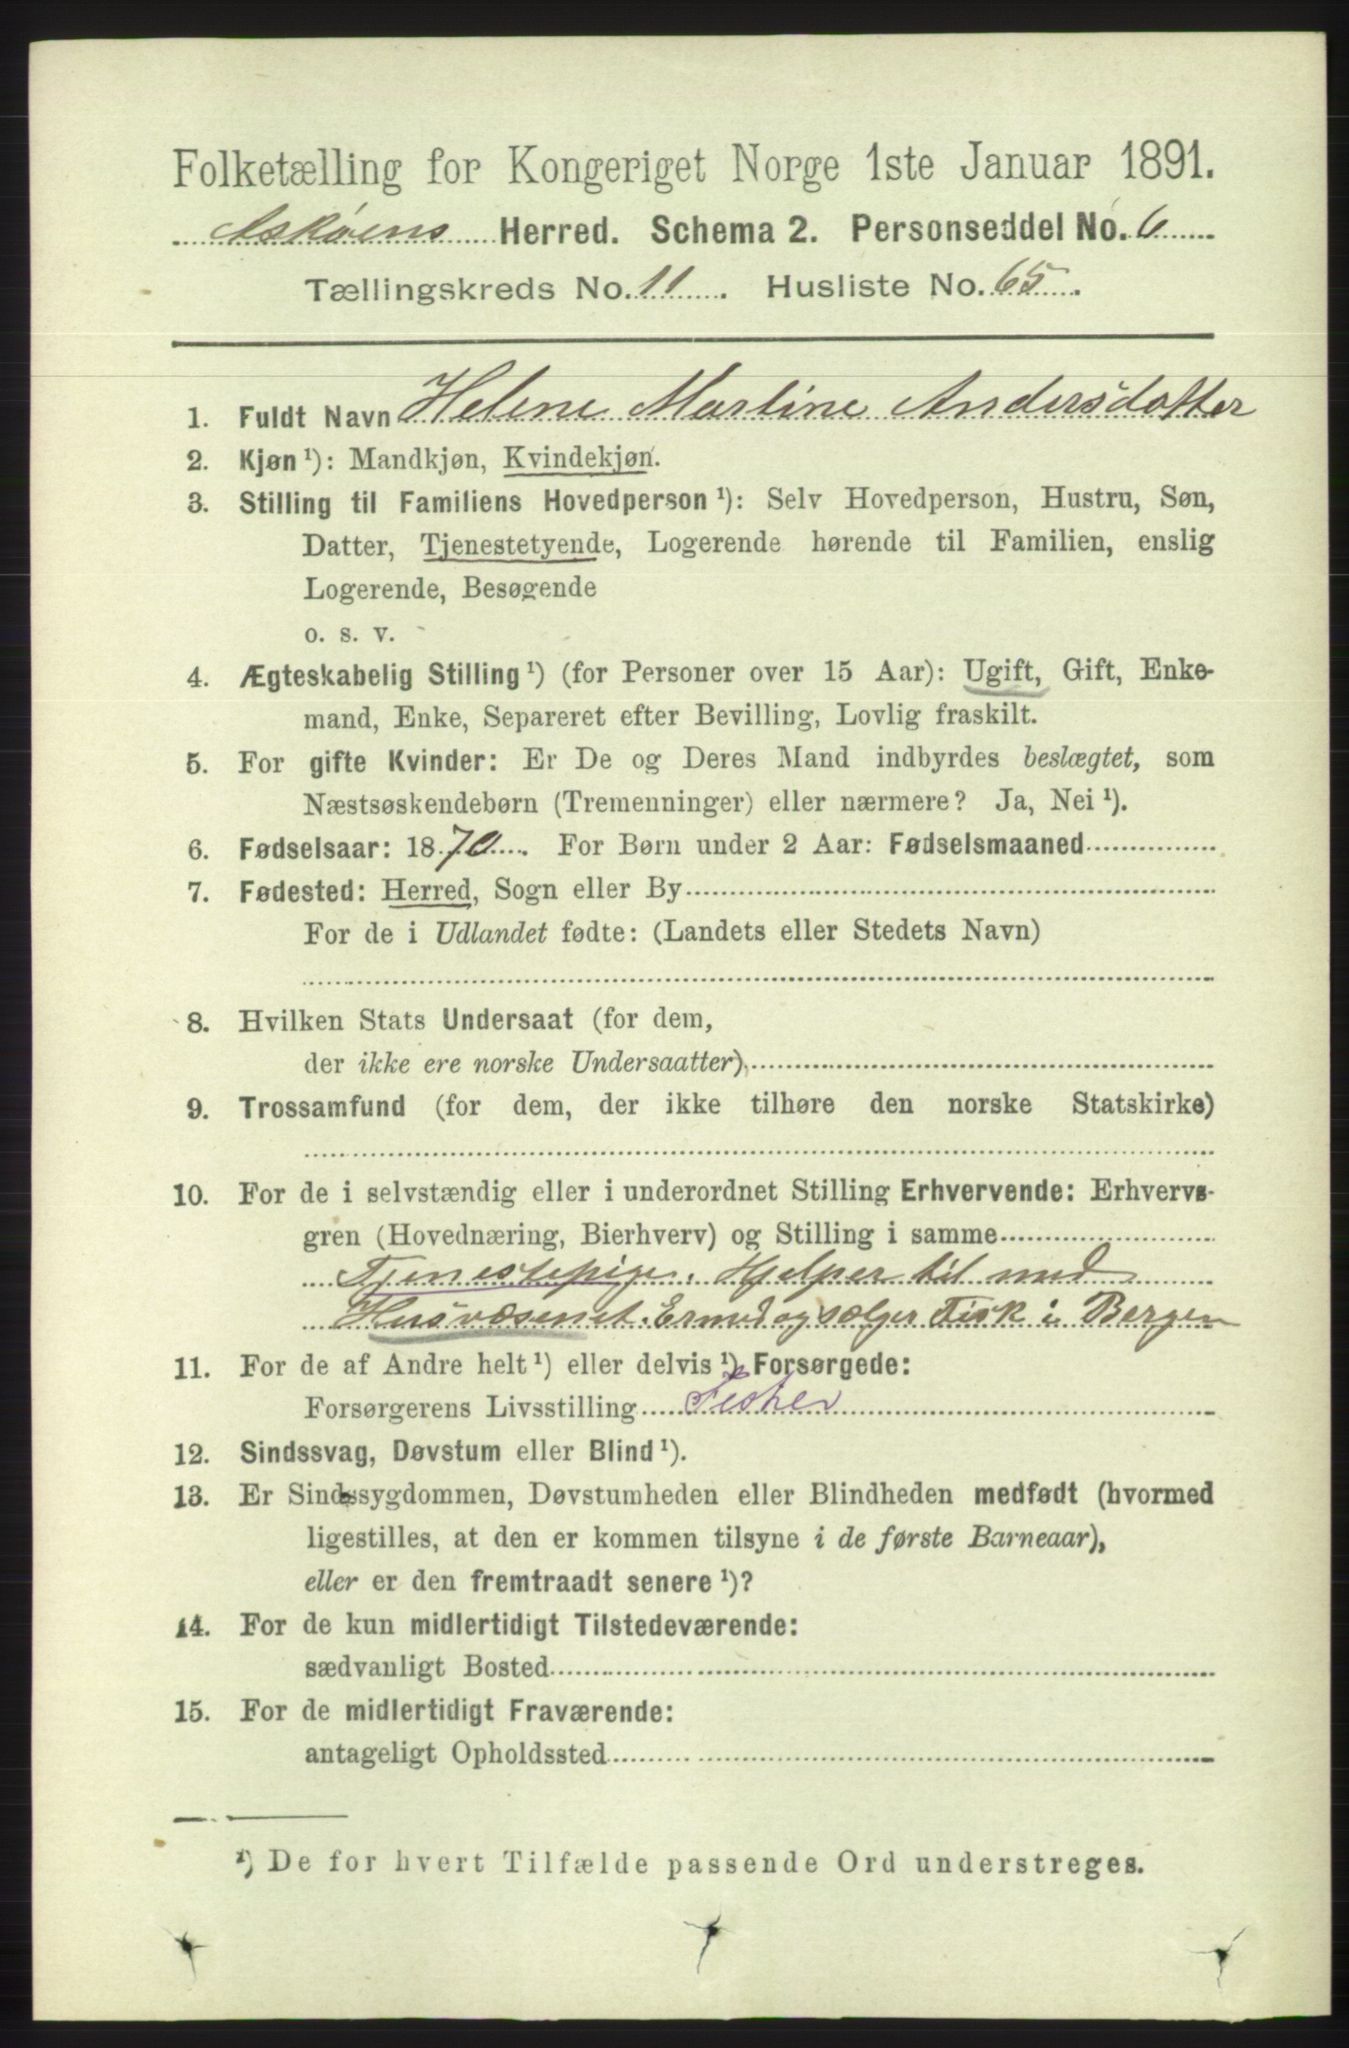 Folketælling for Kongeriget Norge 1ste Januar 1891.
Askøens Herred. Schema 2. Personseddel No. 6
Tællingskreds No. 11. Husliste No. 65.
1. Fuldt Navn Helene Martine Andersdatter
2. Kjøn ¹): Mandkjøn, Kvindekjøn.
3. Stilling til Familiens Hovedperson ¹): Selv Hovedperson, Hustru, Søn,
Datter, Tjenestetyende, Logerende hørende til Familien, enslig
Logerende, Besøgende
o. s. v.
4. Ægteskabelig Stilling ¹) (for Personer over 15 Aar): Ugift, Gift, Enke-
mand, Enke, Separeret efter Bevilling, Lovlig fraskilt.
5. For gifte Kvinder: Er De og Deres Mand indbyrdes beslægtet, som
Næstsøskendebørn (Tremenninger) eller nærmere? Ja, Nei ¹).
6. Fødselsaar: 1870. For Børn under 2 Aar: Fødselsmaaned
7. Fødested: Herred, Sogn eller By
For de i Udlandet fødte: (Landets eller Stedets Navn)
8. Hvilken Stats Undersaat (for dem,
der ikke ere norske Undersaatter)
9. Trossamfund (for dem, der ikke tilhøre den norske Statskirke)
10. For de i selvstændig eller i underordnet Stilling Erhvervende: Erhvervs-
gren (Hovednæring, Bierhverv) og Stilling i samme
Tjenestepige. Hjelper til med
Husvæsenet. Er med og sælger Fisk i Bergen
11. For de af Andre helt ¹) eller delvis ¹) Forsørgede:
Forsørgerens Livsstilling Fisker
12. Sindssvag, Døvstum eller Blind ¹).
13. Er Sindssygdommen, Døvstumheden eller Blindheden medfødt (hvormed
ligestilles, at den er kommen tilsyne i de første Barneaar),
eller er den fremtraadt senere ¹)?
14. For de kun midlertidigt Tilstedeværende:
sædvanligt Bosted
15. For de midlertidigt Fraværende:
antageligt Opholdssted
¹) De for hvert Tilfælde passende Ord understreges.